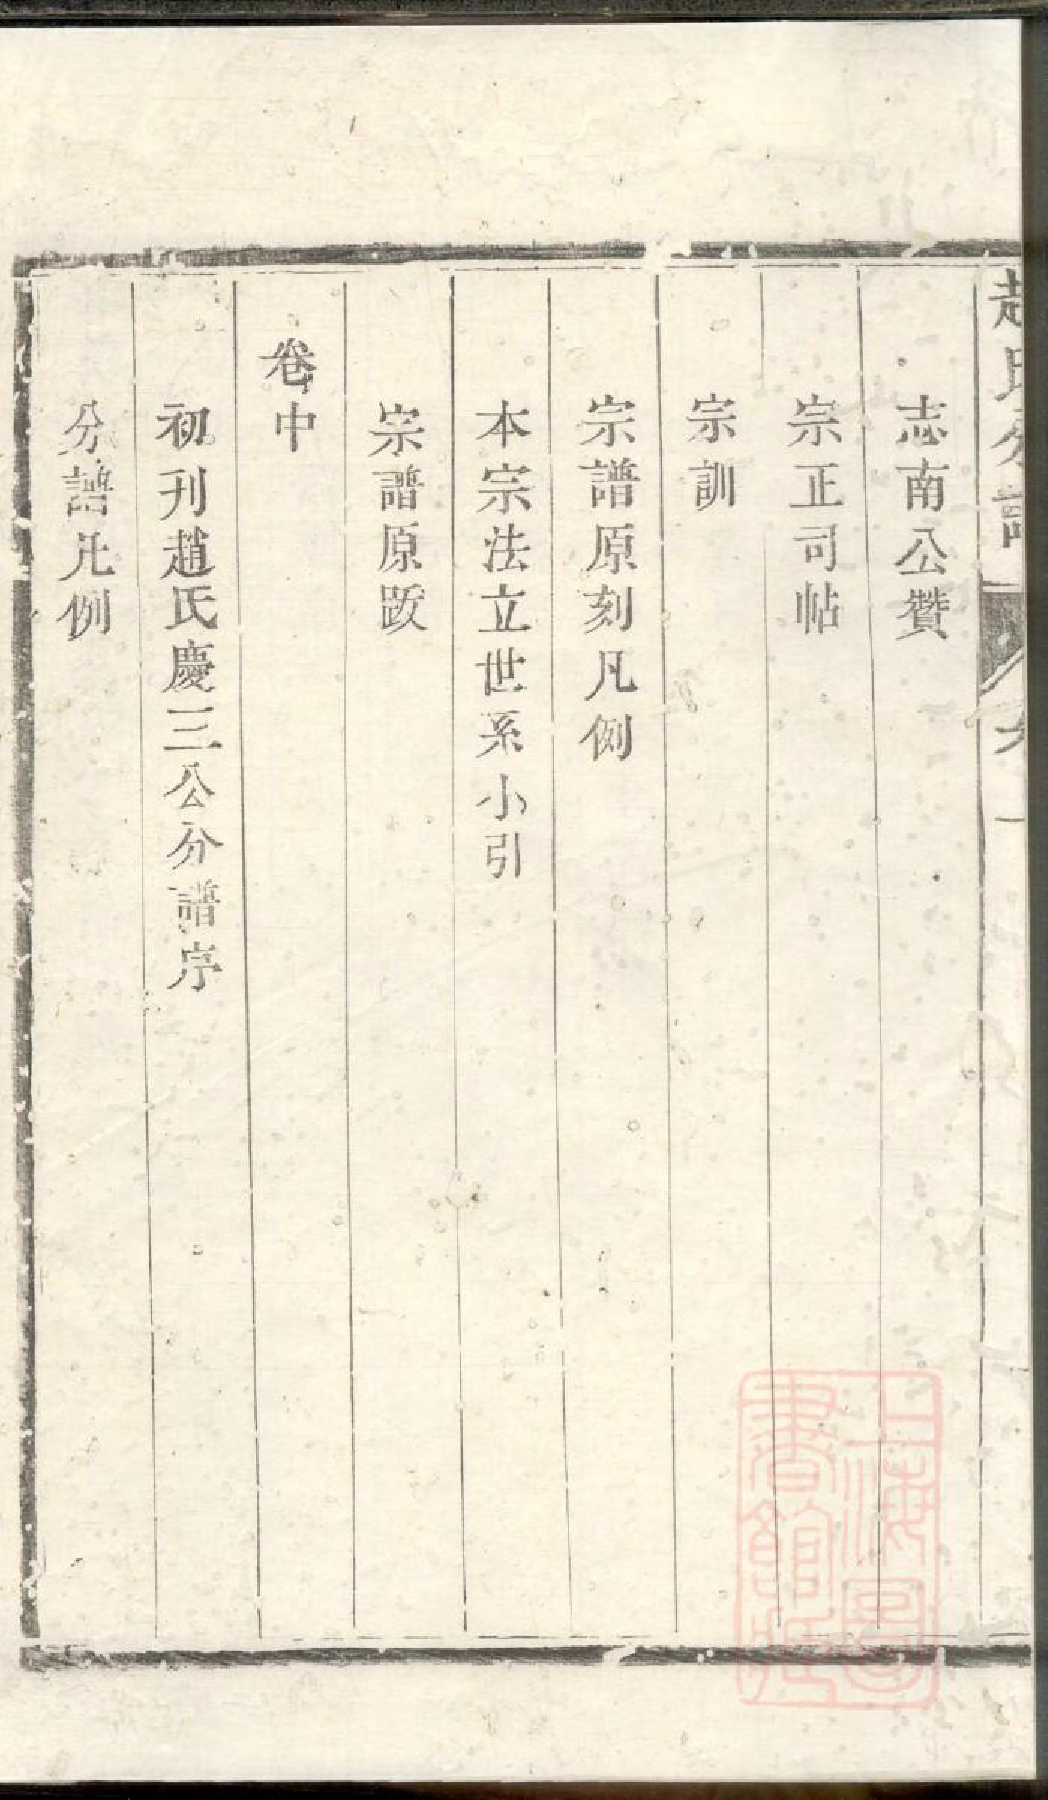 趙氏分譜
志南公贊
宗正司帖
宗訓
宗譜原刻凡例
本宗法立世系小引
宗譜原跋
卷中
初刊趙氏慶三公分譜序
分譜凡例
上海圖
書館藏